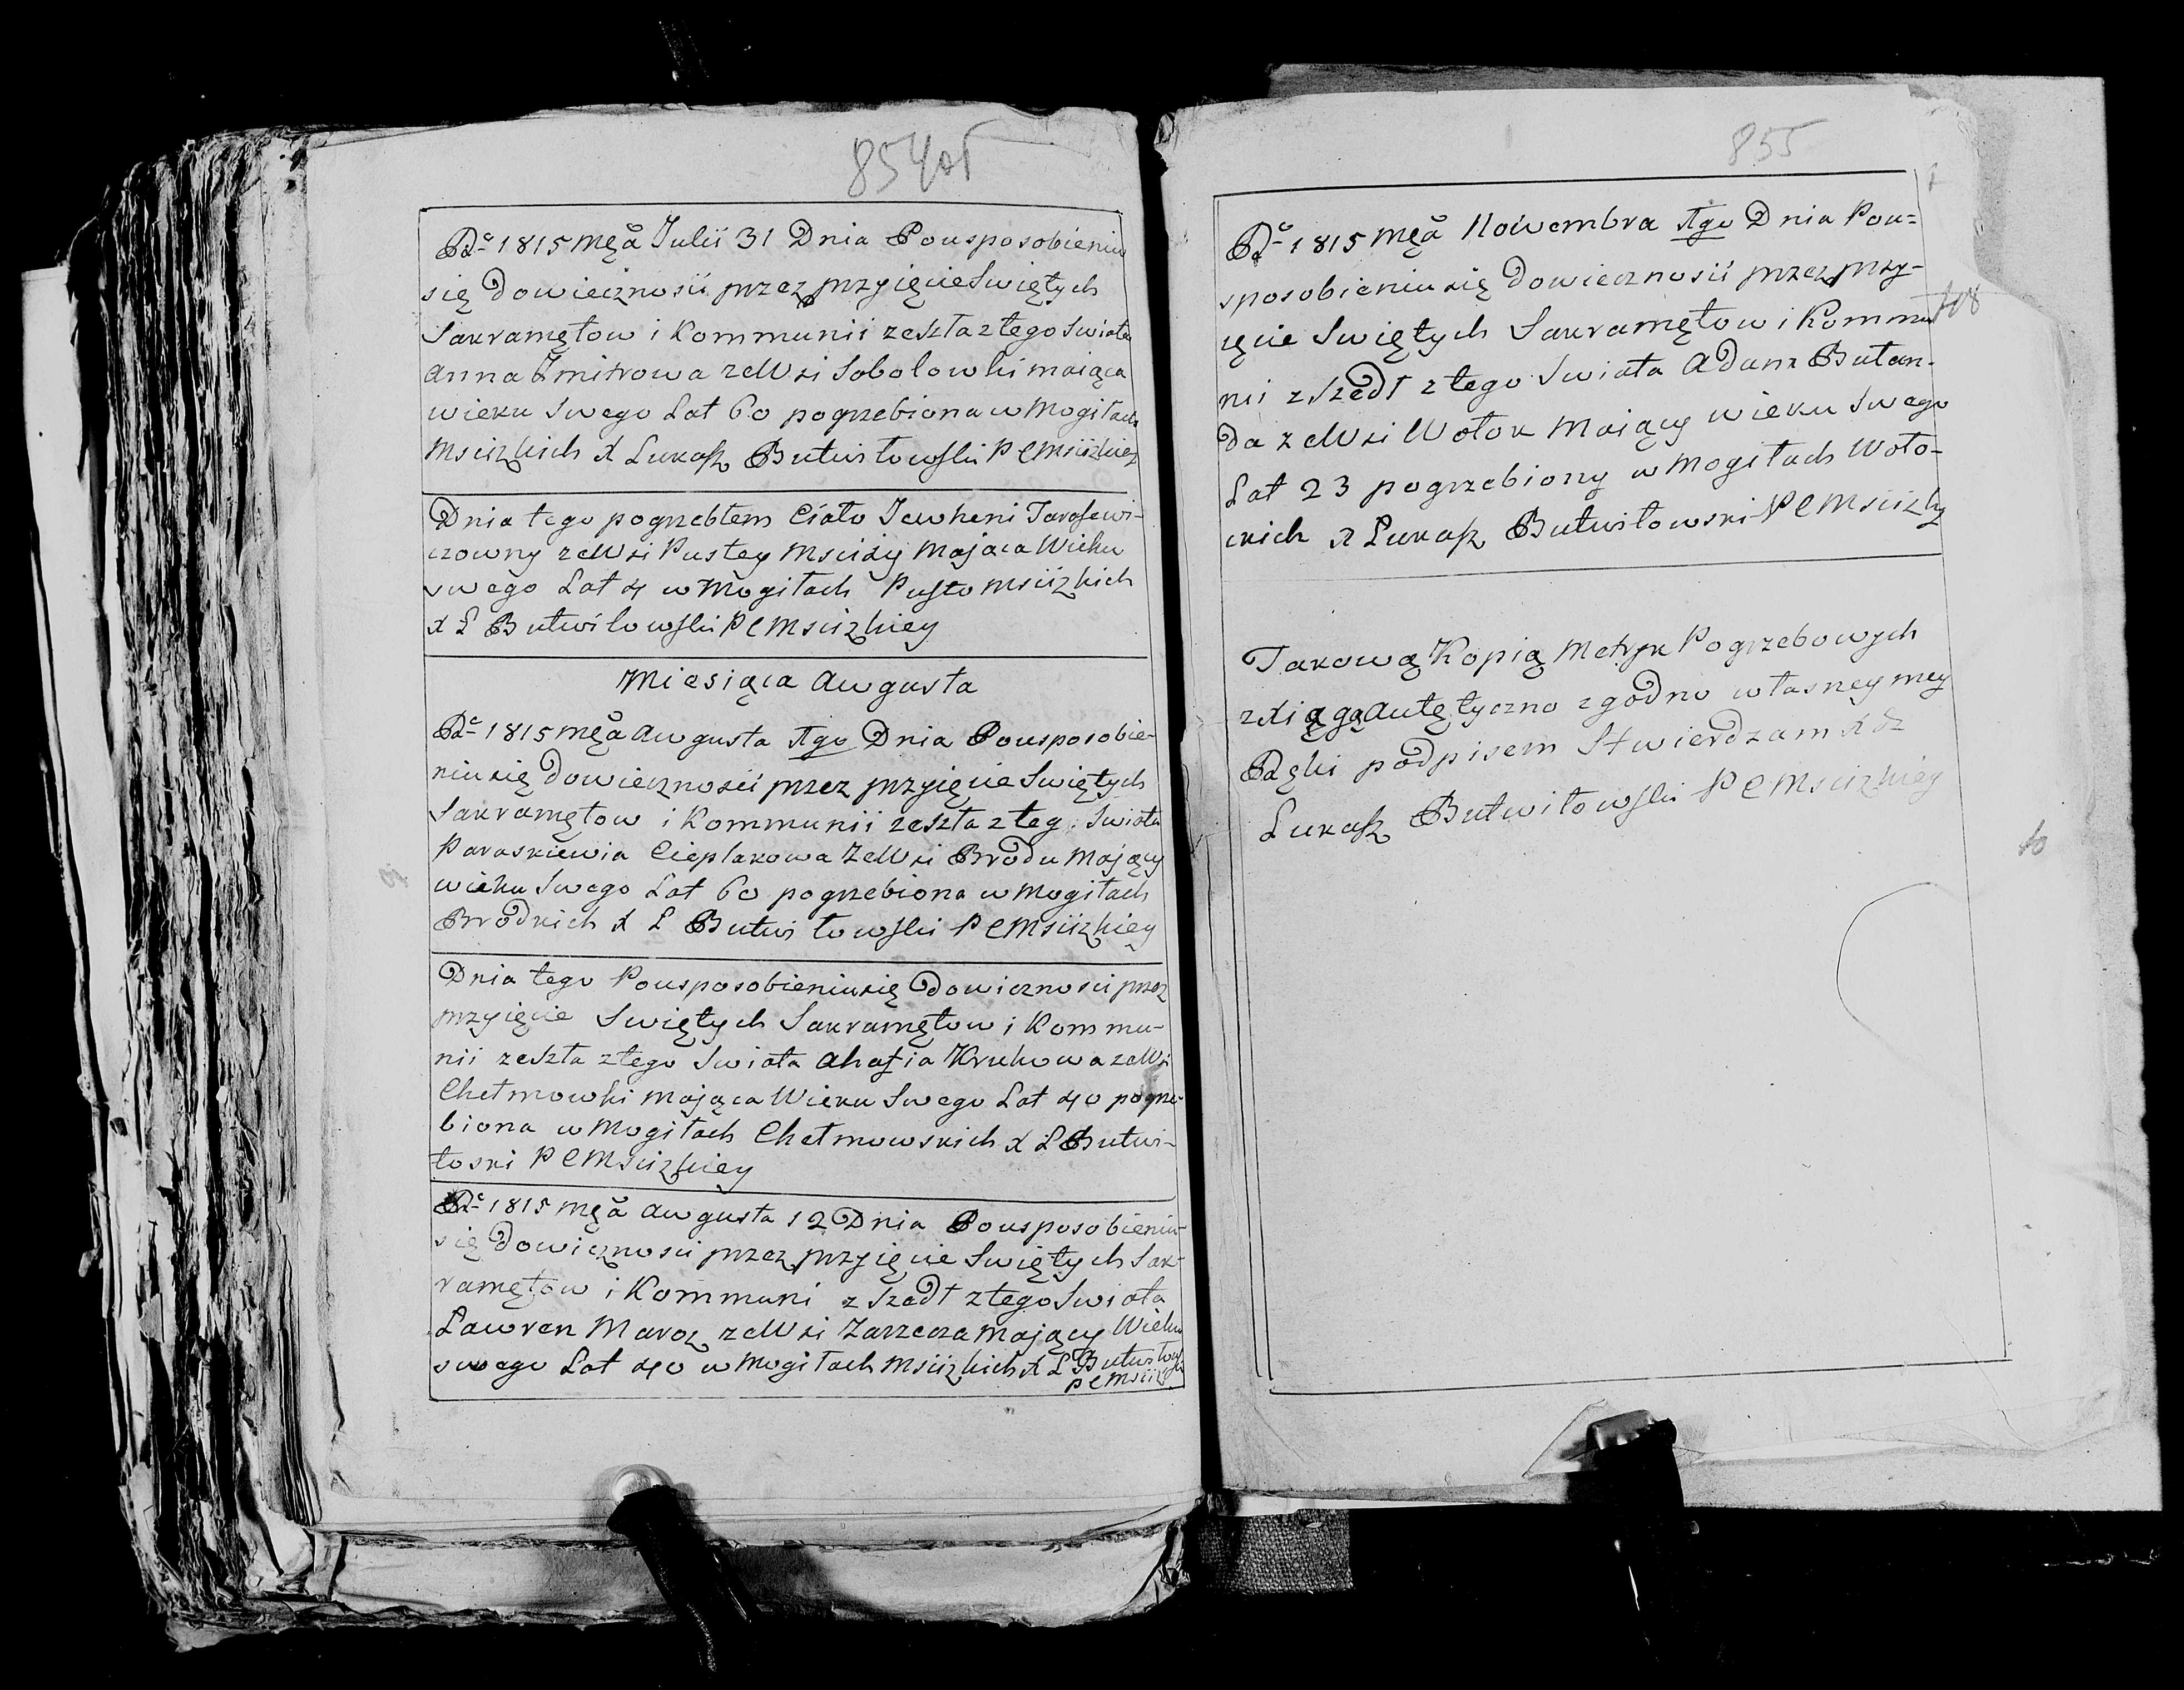 854об
Rd 1815 Mca Julii 31 Dnia Pousposobieniu
się Dowiecznosii przez przyięcie Swiętych
Sakramętow i Kommunii zeszła z tego Swiata
Anna Zmitrowa ze Wsi Sobolowki maiąca
wieku Swego Lat 60 pogrzebiona w Mogiłach
Msciżkich X Łukasz Butwiłowski P C Msciżkiey
Dnia tego pogrzebłem Ciało Jewheni Tarasewi-
czowny ze Wsi Pustey Msciży Mająca Wieku
swego Lat 4 w Mogiłach Pusto Msciżkich
X Ł Butwiłowski P C Msciżkiey
Miesiąca Awgusta
Rd 1815 Mca Awgusta 1go Dnia Pousposobie-
niu się Dowiecznosii przez przyięcie Swiętych
Sakramętow i Kommunii zeszła z teg. Swiata
Paraskiewia Cieplakowa ze Wsi Brodu Mający
wieku Swego Lat 60 pogrzebiona w Mogiłach
Brodkich X Ł Butwiłowski P C Msciżkiey
Dnia tego Pousposobieniu się Dowicznosci przez
przyięcie Swiętych Sakramętow i Kommu-
nii zeszła z tego Swiata Ahafia Krukowa ze Wsi
Chełmowki Mająca Wieku Swego Lat 40 pogrze-
biona w Mogiłach Chełmowskich X Ł Butwi-
łoski P C Msciżkiey
Rd 1815 Mca Awgusta 12 Dnia Pousposobieniu
się Dowicznosci przez przyięcie Swiętych Sak-
ramętow i Kommuni zszedł z tego Swiata
Ławren Maroz ze Wsi Zarzecza Mający Wieku
swego Lat 40 w Mogiłach Msciżkich X Ł Butwiłows
P C Msciż
855
Rd 1815 Mca Nowembra 1go Dnia Pou=
sposobieniu się Dowiecznosii przez przy-
ięcie Swiętych Sakramętow i Kommu
nii zszedł z tego Swiata Adam Butan-
da ze Wsi Wołok Maiący wieku Swego
Lat 23 pogrzebiony w Mogiłach Woło-
ckich X Łukasz Butwiłowski P C Msciżky
Takową Kopią Metryk Pogrzebowych
z Xięgą Autętyczno zgodno własney mey
Ręki podpisem Stwierdzam Xdz
Łukasz Butwiłowski P C Msciżkiey